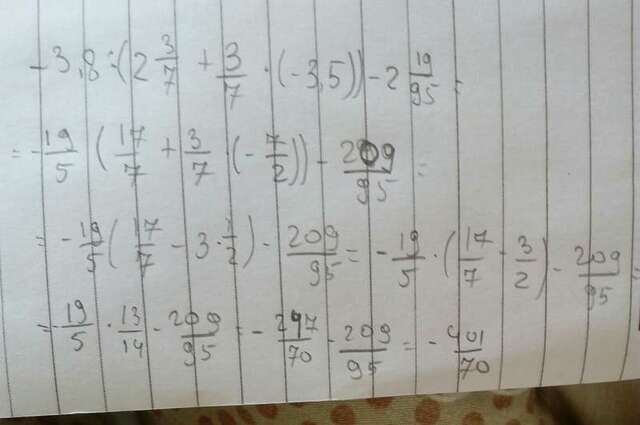 -3,8:(2 3/7 + 3/7 · (-3,5)) - 2 19/95 =
= -19/5 (17/7 + 3/7 · (-7/2)) - 209/95 =
= -19/5 (17/7 - 3 · 1/2) - 209/95 = -19/5 · (17/7 - 3/2) - 209/95 =
= -19/5 · 13/14 - 209/95 = -247/70 - 209/95 = -401/70